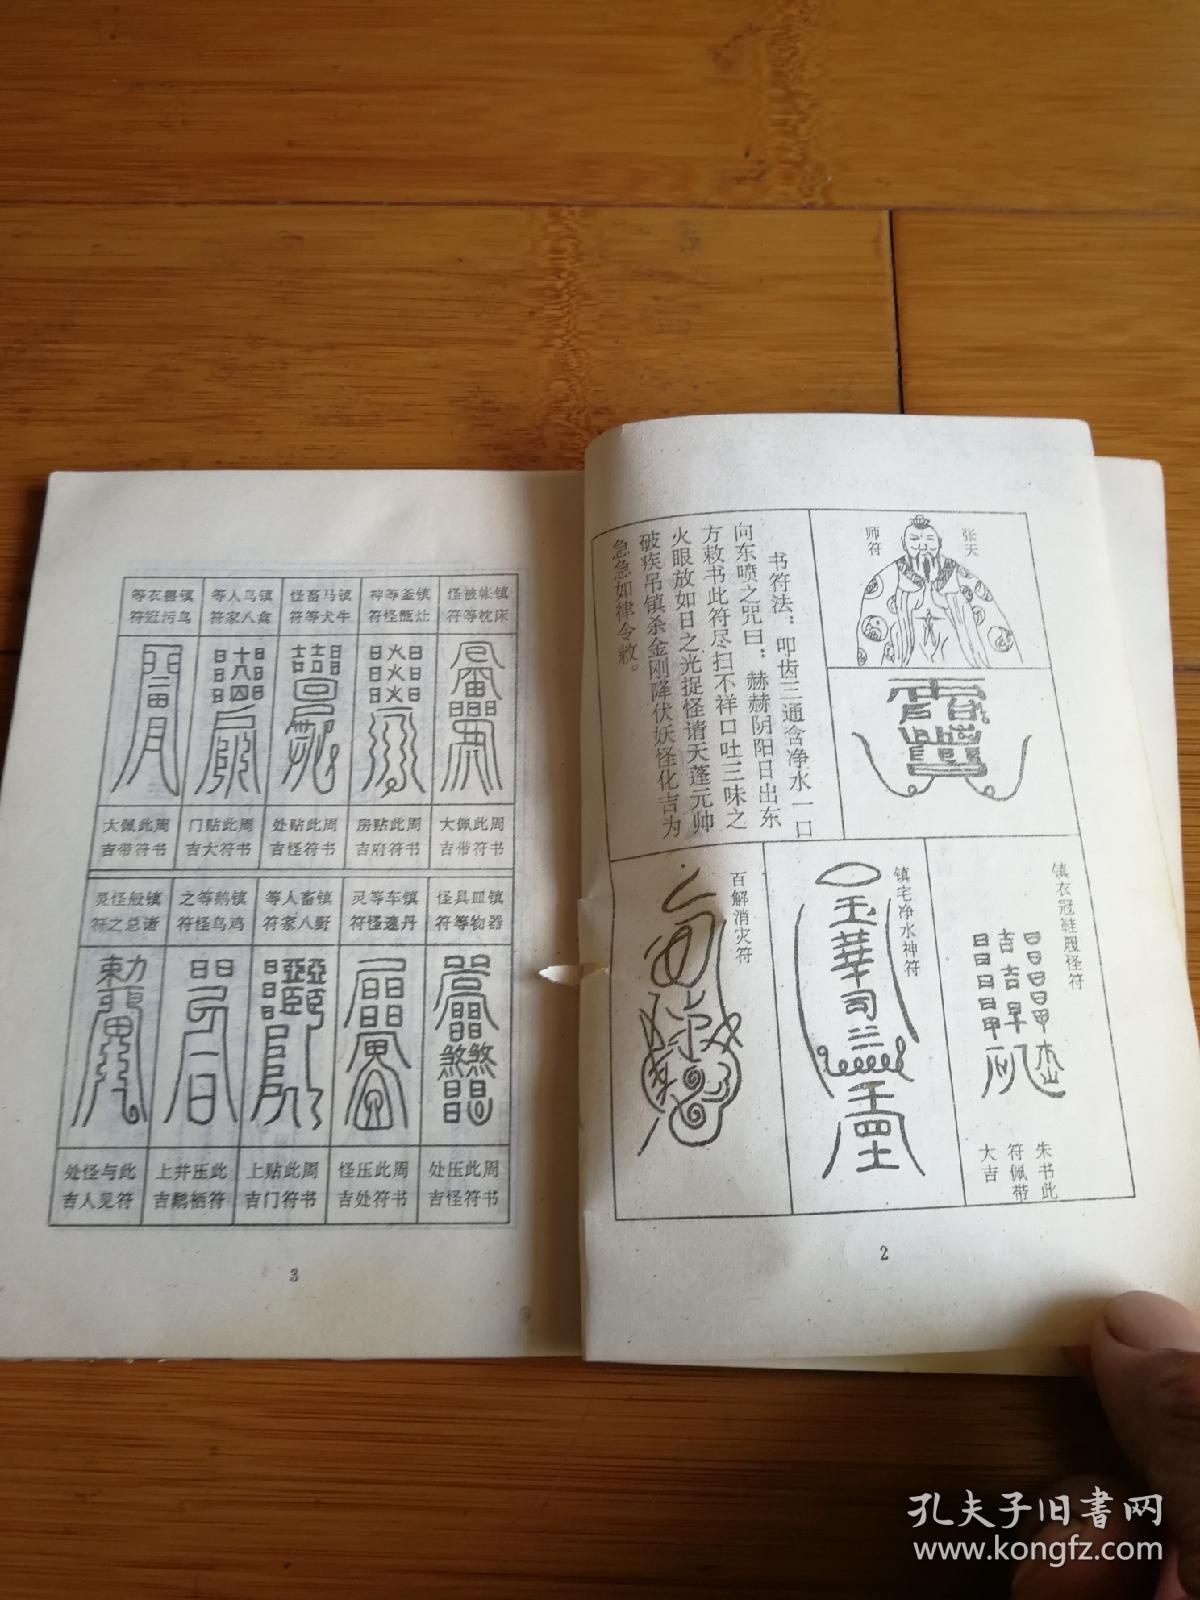 张天
师符
书符法：叩齿三通含净水一口
向东喷之咒曰：赫赫阴阳日出东
方敕书此符尽扫不祥口吐三味之
火眼放如日之光捉怪请天蓬元帅
破疾吊镇杀金刚降伏妖怪化吉为
急急如律令敕。
镇衣冠鞋履怪符
朱书此
符佩带
大吉
镇宅净水神符
百解消灾符
2
镇床
帐枕
被等
怪符
镇灶
釜甑
等怪
神符
镇牛
马犬
畜等
怪符
镇禽
鸟八
人家
等符
镇鸟
兽污
衣冠
等符
周书
此符
佩带
大吉
周书
此符
贴府
房吉
周书
此符
贴怪
处吉
周书
此符
贴大
门吉
周书
此符
佩带
大吉
镇器
皿物
具等
怪符
镇丹
车速
等怪
灵符
镇野
畜八
人家
等符
镇鸡
鹅鸟
等怪
之符
镇诸
般总
怪之
灵符
周书
此符
压怪
处吉
周书
此符
压处
怪吉
周书
此符
贴门
上吉
此符
压栖
井鹏
上吉
此符
与见
怪人
处吉
3
孔夫子旧书网
www.kongfz.com